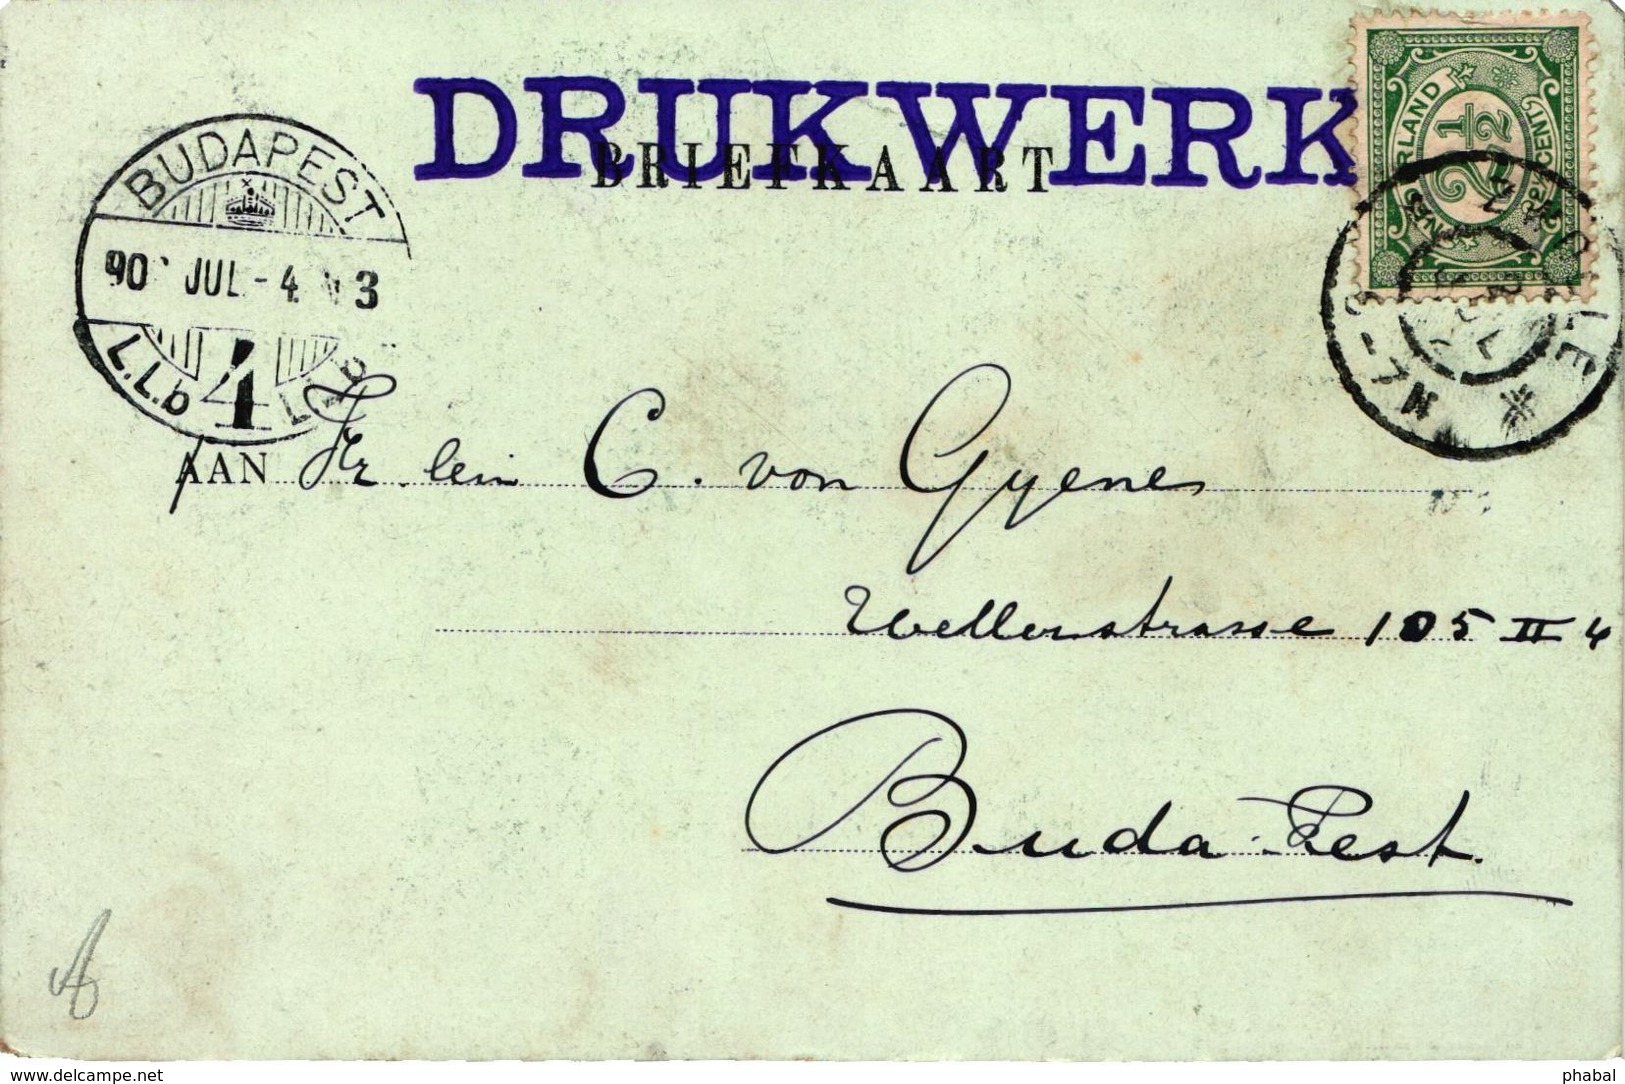 DRUKWERK
BRIEFKAART
BUDAPEST
90 JUL - 4 3
L.L.b 4
NEDERLAND
2½ CENT
AAN Fr. lein C. von Gyenes
Wellenstrasse 105 II 4
Buda-Pest.
www.delcampe.net
phabal